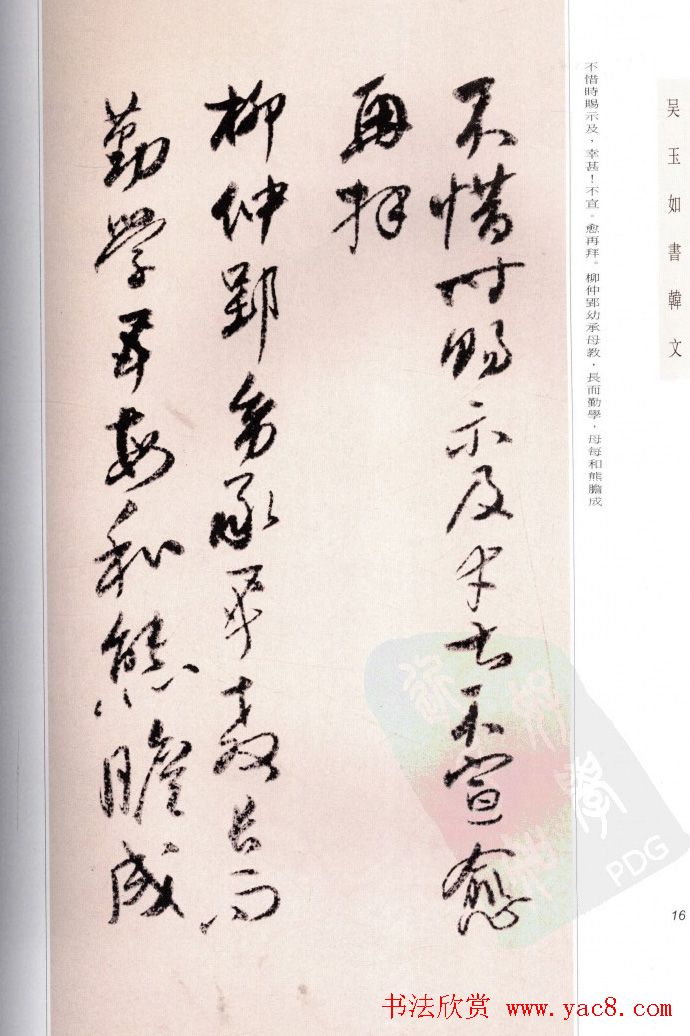 吴玉如書韓文
不惜時賜示及，幸甚！不宣。愈再拜。柳仲郢幼承母教，長而勤學，母每和熊膽成
不惜時賜示及幸甚不宣愈
再拜
柳仲郢幼承母教長而
勤學母每和熊膽成
PDG
16
书法欣赏 www.yac8.com